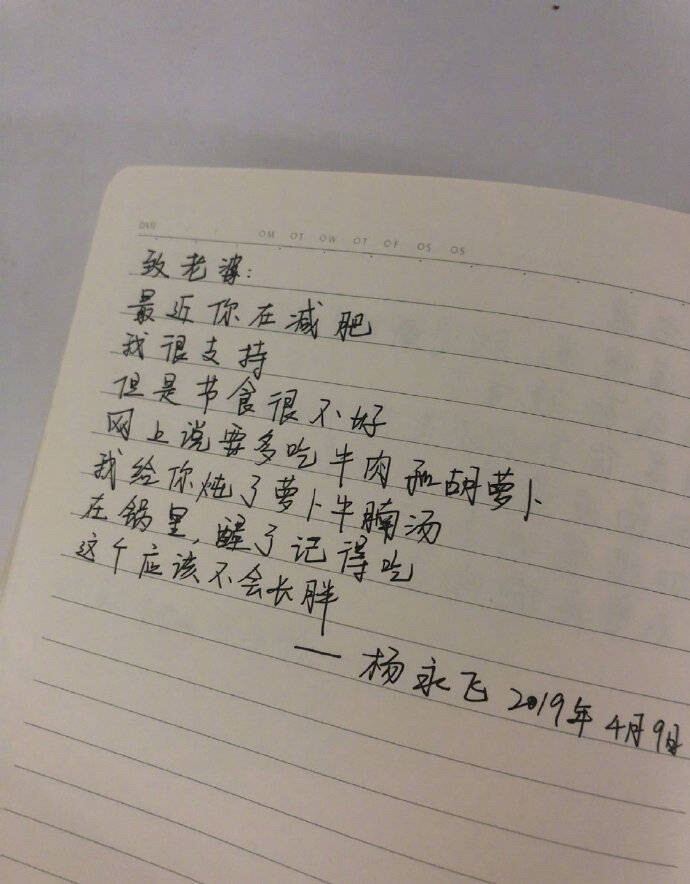 DATE
○M ○T ○W ○T ○F ○S ○S
致老婆：
最近你在减肥
我很支持
但是节食很不好
网上说要多吃牛肉和胡萝卜
我给你炖了萝卜牛腩汤
在锅里，醒了记得吃
这个应该不会长胖
——杨永飞 2019年4月9日